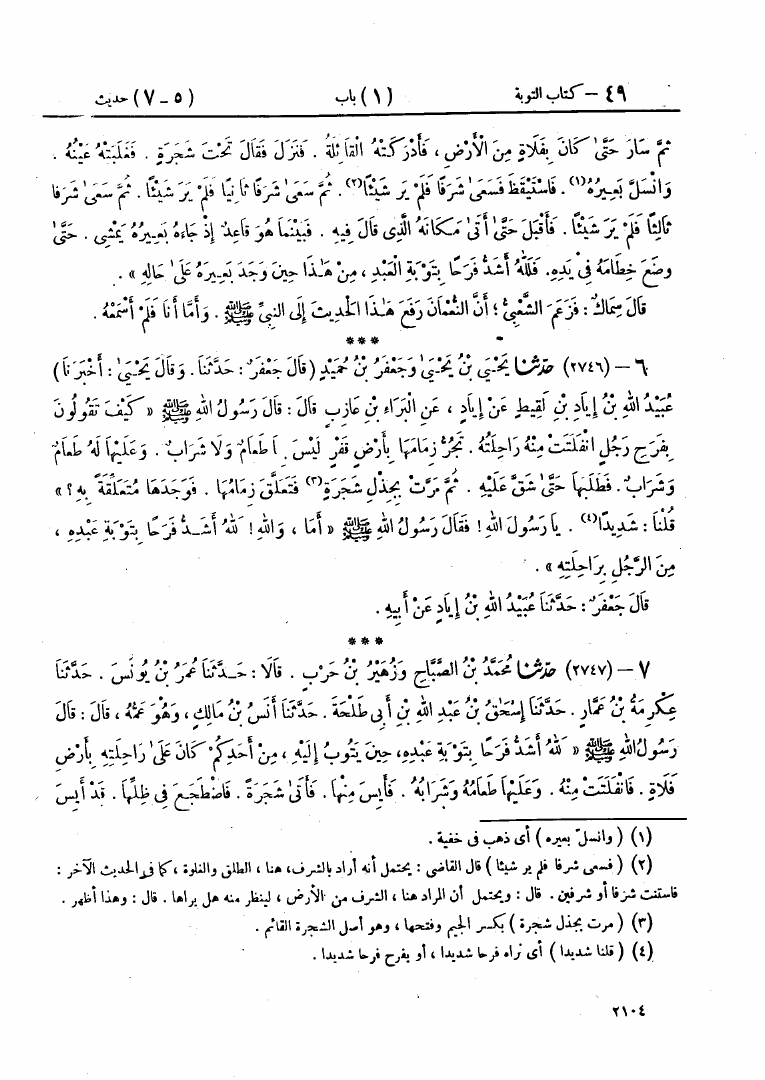 ٤٩ – كتاب التوبة (١) باب (٥ – ٧) حديث
ثُمَّ سَارَ حَتَّىٰ كَانَ بِفَلَاةٍ مِنَ الْأَرْضِ ، فَأَدْرَكَتْهُ الْقَائِلَةُ . فَنَزَلَ فَقَالَ تَحْتَ شَجَرَةٍ . فَغَلَبَتْهُ عَيْنُهُ .
وَانْسَلَّ بَعِيرُهُ(١) . فَاسْتَيْقَظَ فَسَعَىٰ شَرَفًا فَلَمْ يَرَ شَيْئًا(٢) . ثُمَّ سَعَىٰ شَرَفًا ثَانِيًا فَلَمْ يَرَ شَيْئًا . ثُمَّ سَعَىٰ شَرَفًا
ثَالِثًا فَلَمْ يَرَ شَيْئًا . فَأَقْبَلَ حَتَّىٰ أَتَىٰ مَكَانَهُ الَّذِى قَالَ فِيهِ . فَبَيْنَمَا هُوَ قَاعِدٌ إِذْ جَاءَهُ بَعِيرُهُ يَمْشِى . حَتَّىٰ
وضَعَ خِطَامَهُ فِي يَدِهِ. فَلَلّٰهُ أَشَدُّ فَرَحًا بِتَوْبَةِ الْعَبْدِ ، مِنْ هَـٰذَا حِينَ وَجَدَ بَعِيرَهُ عَلَىٰ حَالِهِ » .
قَالَ سِمَاكٌ : فَزَعَمَ الشَّعْبِىُّ ؛ أَنَّ النُّعْمَانَ رَفَعَ هَـٰذَا الْحَدِيثَ إِلَى النَّبِيِّ ﷺ . وَأَمَّا أَنَا فَلَمْ أَسْمَعْهُ .
***
٦ – (٢٧٤٦) حَدَّثَنَا يَحْيَى بْنُ يَحْيَىٰ وَجَعْفَرُ بْنُ حُمَيْدٍ (قَالَ جَعْفَرٌ : حَدَّثَنَا. وَقَالَ يَحْيَىٰ : أَخْبَرَنَا)
عُبَيْدُ اللهِ بْنُ إِيَادِ بْنِ لَقِيطٍ عَنْ إِيَادٍ ، عَنِ الْبَرَاءِ بْنِ عَازِبٍ قَالَ : قَالَ رَسُولُ اللهِ ﷺ « كَيْفَ تَقُولُونَ
بِفَرَحِ رَجُلٍ انْفَلَتَتْ مِنْهُ رَاحِلَتُهُ . تَجُرُّ زِمَامَهَا بِأَرْضٍ قَفْرٍ لَيْسَ طَعَامٌ وَلَا شَرَابٌ . وَعَلَيْهَا لَهُ طَعَامٌ
وَشَرَابٌ . فَطَلَبَهَا حَتَّىٰ شَقَّ عَلَيْهِ . ثُمَّ مَرَّتْ بِجِذْلِ شَجَرَةٍ(٣) فَتَعَلَّقَ زِمَامُهَا . فَوَجَدَهَا مُتَعَلِّقَةً بِهِ ؟ »
قُلْنَا : شَدِيدًا(٤) . يَا رَسُولَ اللهِ ! فَقَالَ رَسُولُ اللهِ ﷺ « أَمَا ، وَاللهِ ! لَلّٰهُ أَشَدُّ فَرَحًا بِتَوْبَةِ عَبْدِهِ ،
مِنَ الرَّجُلِ بِرَاحِلَتِهِ » .
قَالَ جَعْفَرٌ : حَدَّثَنَا عُبَيْدُ اللهِ بْنُ إِيَادٍ عَنْ أَبِيهِ .
***
٧ – (٢٧٤٧) حَدَّثَنَا مُحَمَّدُ بْنُ الصَّبَّاحِ وَزُهَيْرُ بْنُ حَرْبٍ . قَالَا : حَدَّثَنَا عُمَرُ بْنُ يُونُسَ . حَدَّثَنَا
عِكْرِمَةُ بْنُ عَمَّارٍ . حَدَّثَنَا إِسْحَٰقُ بْنُ عَبْدِ اللهِ بْنِ أَبِي طَلْحَةَ . حَدَّثَنَا أَنَسُ بْنُ مَالِكٍ ، وَهُوَ عَمُّهُ ، قَالَ : قَالَ
رَسُولُ اللهِ ﷺ « لَلّٰهُ أَشَدُّ فَرَحًا بِتَوْبَةِ عَبْدِهِ، حِينَ يَتُوبُ إِلَيْهِ ، مِنْ أَحَدِكُمْ كَانَ عَلَىٰ رَاحِلَتِهِ بِأَرْضِ
فَلَاةٍ . فَانْفَلَتَتْ مِنْهُ . وَعَلَيْهَا طَعَامُهُ وَشَرَابُهُ . فَأَيِسَ مِنْهَا . فَأَتَىٰ شَجَرَةً . فَاضْطَجَعَ فِي ظِلِّهَا . قَدْ أَيِسَ
(١) ( وانسلّ بعيره ) أى ذهب فى خفية .
(٢) ( فسعى شرفا فلم ير شيئا ) قال القاضى : يحتمل أنه أراد بالشرف، هنا ، الطلق والغلوة ، كما فى الحديث الآخر :
فاستنت شرفا أو شرفين . قال : ويحتمل أن المراد هنا ، الشرف من الأرض ، لينظر منه هل يراها . قال : وهذا أظهر .
(٣) ( مرت بجذل شجرة ) بكسر الجيم وفتحها ، وهو أصل الشجرة القائم .
(٤) ( قلنا شديدا ) أى نراه فرحا شديدا ، أو يفرح فرحا شديدا .
٢١٠٤